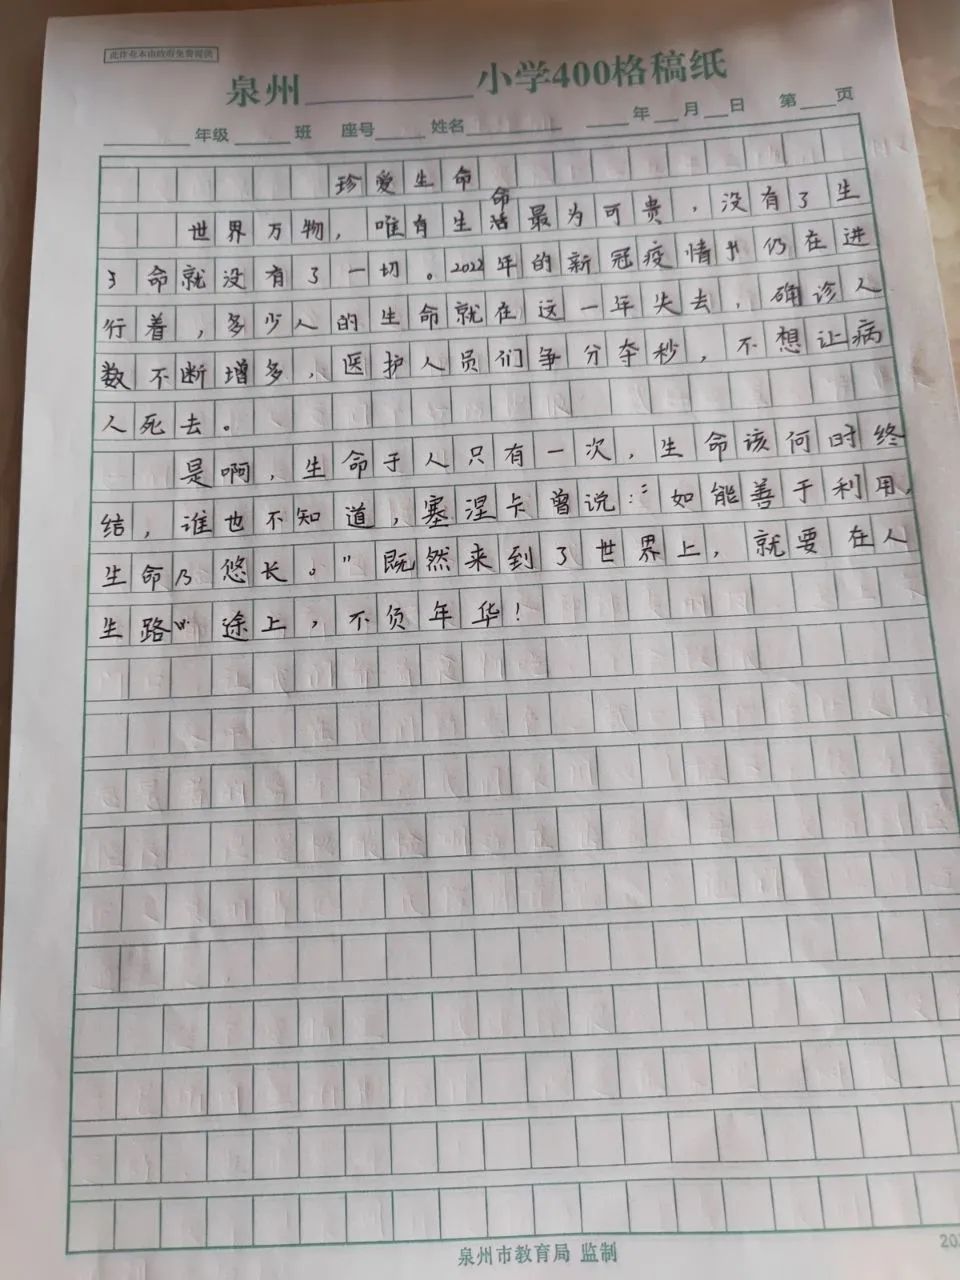 此作业本由政府免费提供
泉州 小学400格稿纸
年级 班 座号 姓名 年 月 日 第 页
珍爱生命
世界万物，唯有生命最为可贵，没有了生
命就没有了一切。2022年的新冠疫情仍在进
行着，多少人的生命就在这一年失去，确诊人
数不断增多，医护人员们争分夺秒，不想让病
人死去。
是啊，生命于人只有一次，生命该何时终
结，谁也不知道，塞涅卡曾说：“如能善于利用，
生命乃悠长。”既然来到了世界上，就要在人
生路途上，不负年华！
泉州市教育局 监制